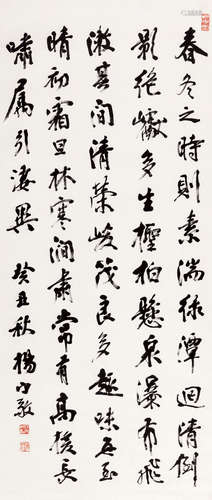 春冬之時則素湍綠潭迴清倒
影絕巘多生檉柏懸泉瀑布飛
漱其間清榮峻茂良多趣味每至
晴初霜旦林寒澗肅常有高猿長
嘯屬引淒異 癸丑秋 楊守敬